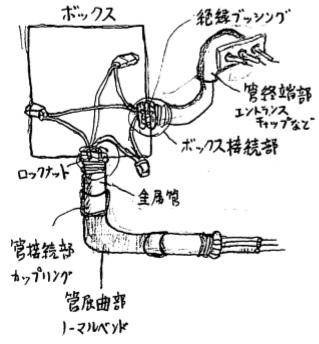 ボックス
絶縁ブッシング
管終端部
エントランス
キャップなど
ボックス接続部
ロックナット
金属管
管接続部
カップリング
管屈曲部
ノーマルベンド